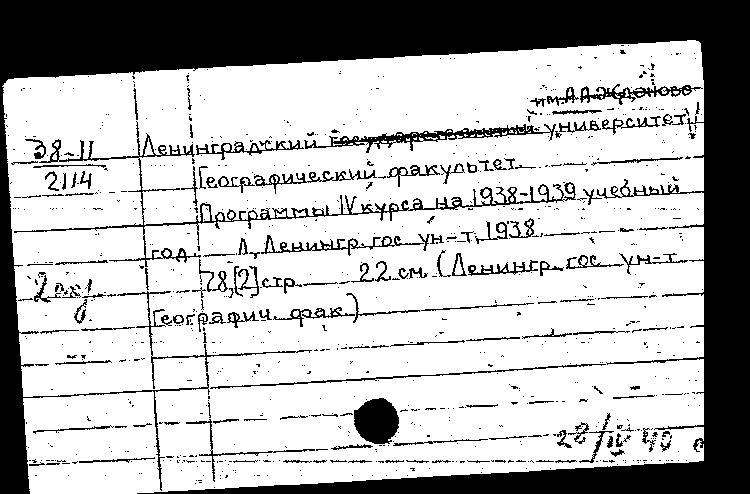 им. А. А. Жданова
38-11 Ленинградский государственный университет
2114 Географический факультет.
Программы IV курса на 1938-1939 учебный
год. Л, Ленингр. гос ун-т, 1938.
2 экз 78,[2] стр. 22 см. (Ленингр. гос ун-т
Географич. фак.)
28/IV 40